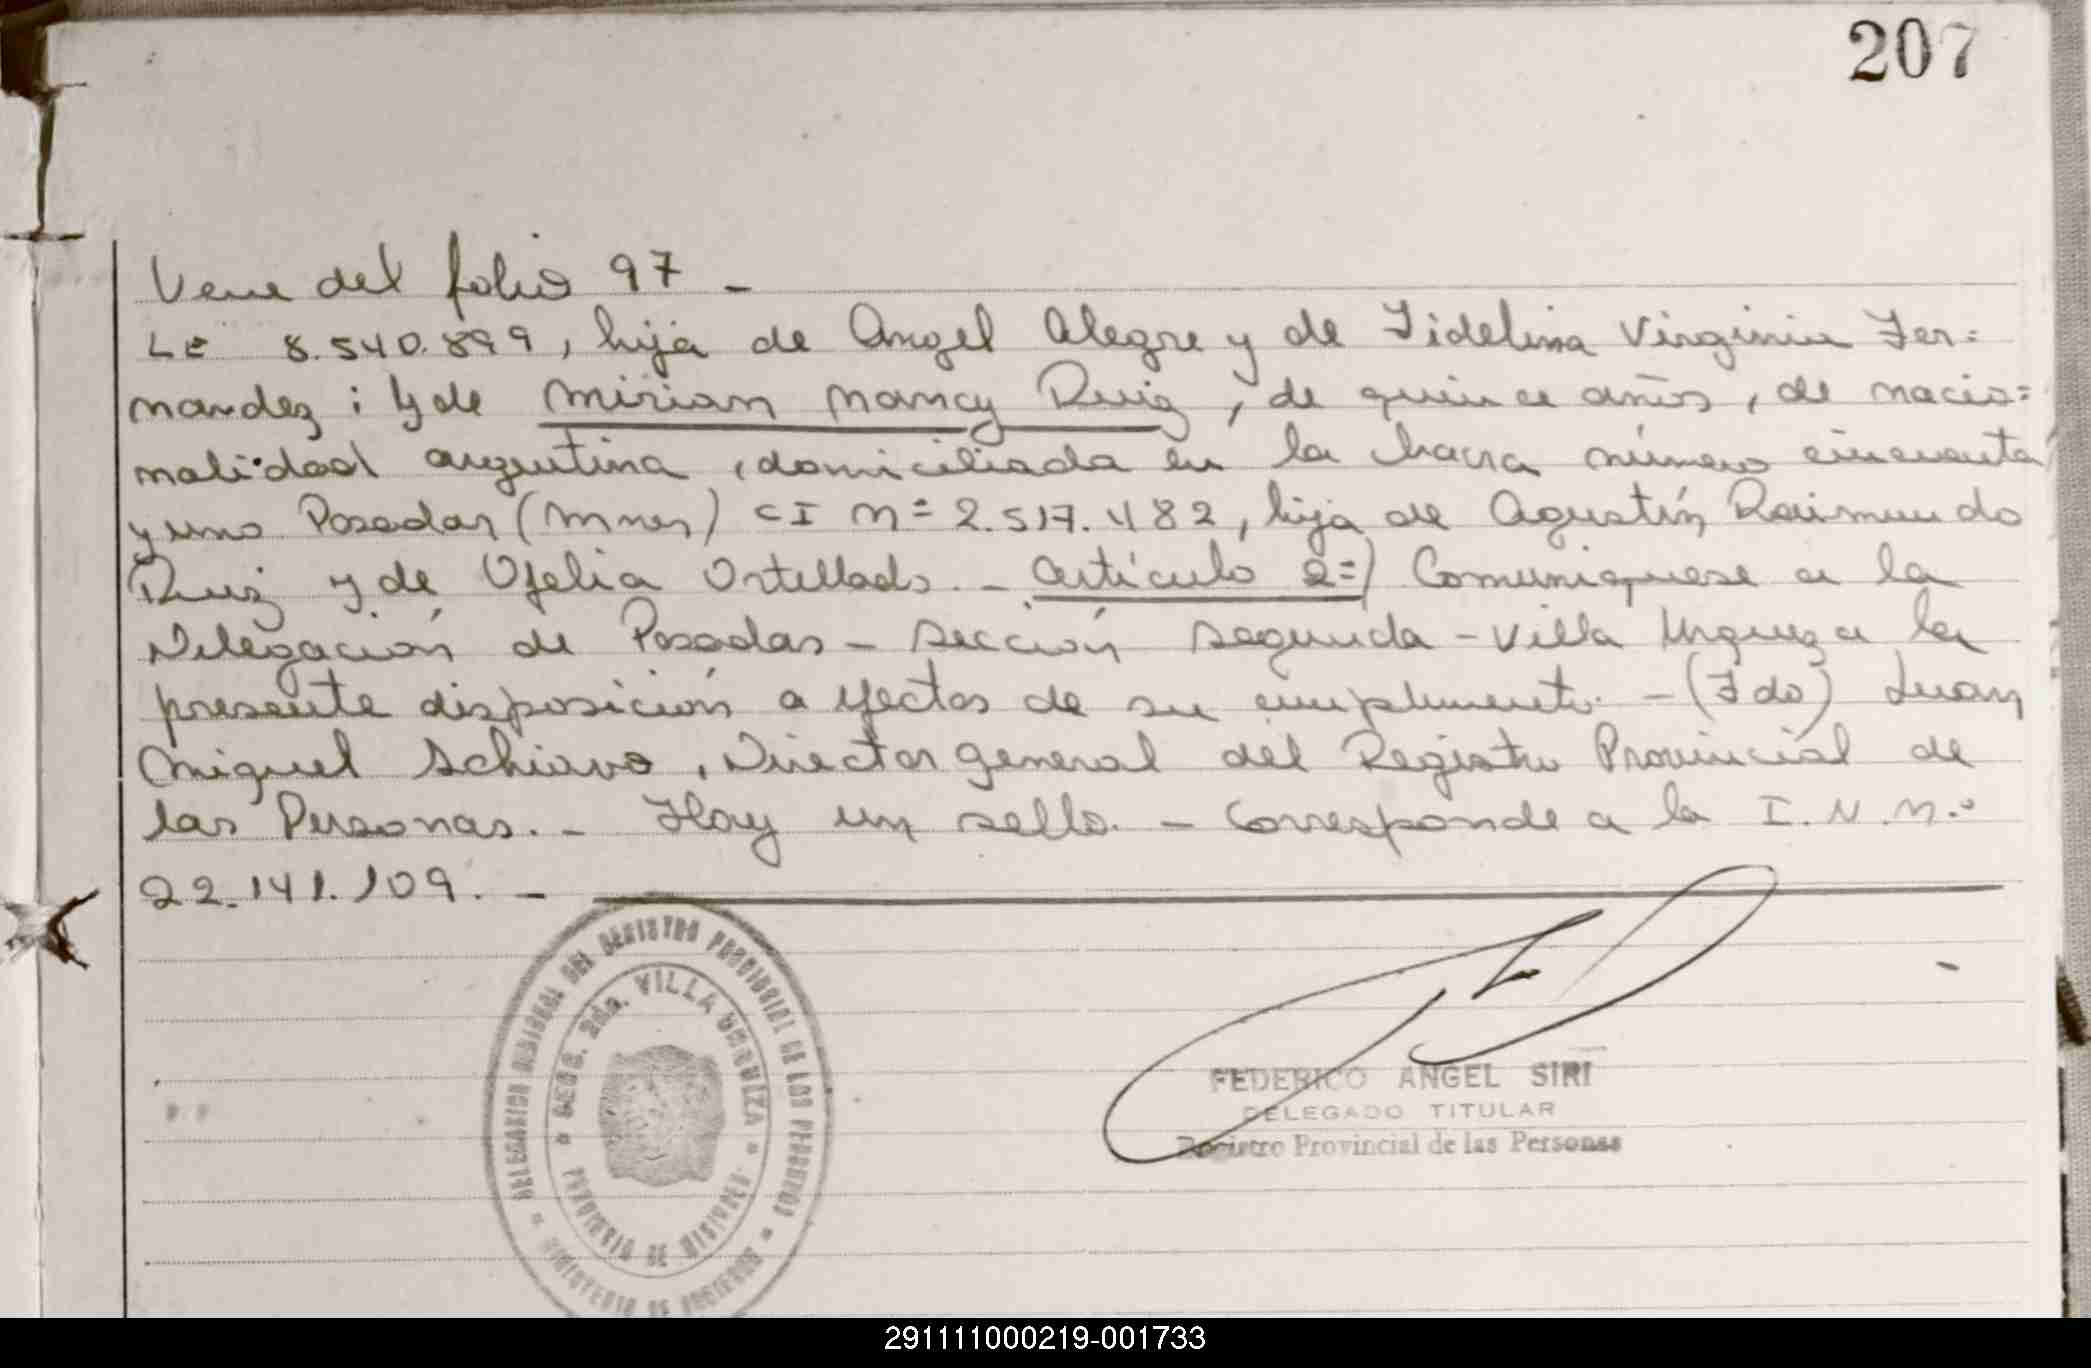 207
Viene del folio 97 -
LE 8.540.899, hija de Angel Alegre y de Fidelina Virginia Fer=
nandez; y de Mirian Nancy Ruiz, de quince años, de nacio=
nalidad argentina, domiciliada en la chacra número cincuenta
y uno Posadas (Mnes) CI Nº 2.517.482, hija de Agustín Raimundo
Ruiz y de Ofelia Ortellado. - Artículo 2º) Comuniquese a la
Delegación de Posadas - Sección Segunda - Villa Urquiza la
presente disposición a efectos de su cumplimiento. - (Fdo) Juan
Miguel Schiavo, Director general del Registro Provincial de
las Personas. - Hay un sello. - Corresponde a la I.N.Nº
22.141.109. -
DELEGACION DEL REGISTRO PROVINCIAL DE LAS PERSONAS
SECC. 2da. VILLA URQUIZA
PROVINCIA DE MISIONES
MINISTERIO DE GOBIERNO
FEDERICO ANGEL SIRI
DELEGADO TITULAR
Registro Provincial de las Personas
291111000219-001733